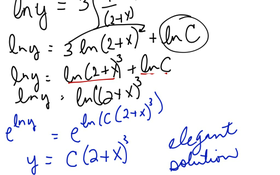 ln y = 3 ∫ 1/(2+x)
ln y = 3 ln(2+x) + ln C
ln y = ln(2+x)³ + ln C
ln y = ln(C(2+x)³)
e^(ln y) = e^(ln(C(2+x)³))
y = C(2+x)³
elegant
solution